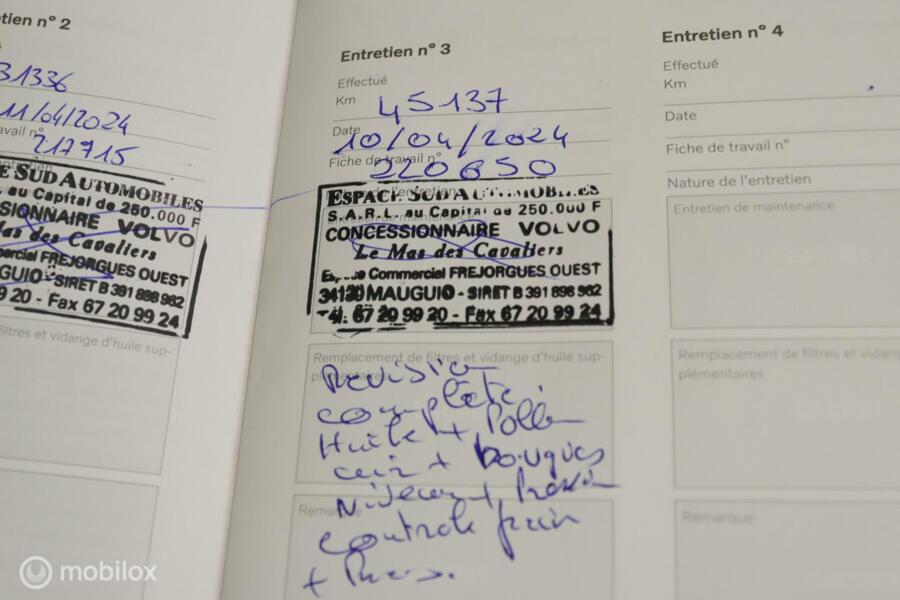 tien n° 2
31336
11/04/2024
avail n°
217715
E SUD AUTOMOBILES
. au Capital de 250.000 F
SIONNAIRE VOLVO
Mas des Cavaliers
mercial FREJORGUES OUEST
GUIO - SIRET B 391 898 982
9 20 - Fax 67 20 99 24
filtres et vidange d'huile sup-
Entretien n° 3
Effectué
Km 45137
Date 10/04/2024
Fiche de travail n° 220650
ESPACE SUD AUTOMOBILES
S.A.R.L. au Capital de 250.000 F
CONCESSIONNAIRE VOLVO
Le Mas des Cavaliers
Espace Commercial FREJORGUES OUEST
34130 MAUGUIO - SIRET B 391 898 982
Tél. 67 20 99 20 - Fax 67 20 99 24
Remplacement de filtres et vidange d'huile sup-
plémentaires
Revision
complète
Huile + Pollen
air + Bougies
Niveaux + Pression
Remarque
controle frein
+ Pneus.
Entretien n° 4
Effectué
Km
Date
Fiche de travail n°
Nature de l'entretien
Entretien de maintenance
Remplacement de filtres et vidange
plémentaires
Remarque
mobilox